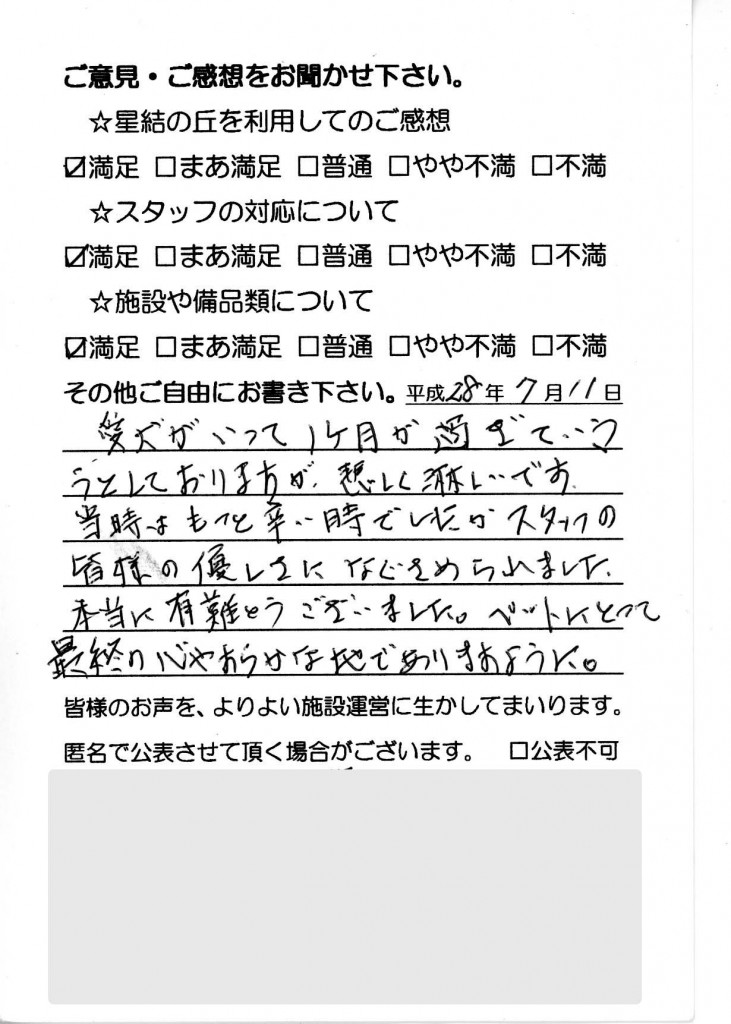 ご意見・ご感想をお聞かせ下さい。
☆星結の丘を利用してのご感想
☑満足 □まあ満足 □普通 □やや不満 □不満
☆スタッフの対応について
☑満足 □まあ満足 □普通 □やや不満 □不満
☆施設や備品類について
☑満足 □まあ満足 □普通 □やや不満 □不満
その他ご自由にお書き下さい。平成28年7月11日
愛犬がいって1ケ月が過ぎていこ
うとしておりますが、悲しく淋しいです
当時はもっと辛い時でしたがスタッフの
皆様の優しさになぐさめられました、
本当に有難とうございました。ペットにとって
最終の心やおらかな地でありますように。
皆様のお声を、よりよい施設運営に生かしてまいります。
匿名で公表させて頂く場合がございます。 □公表不可